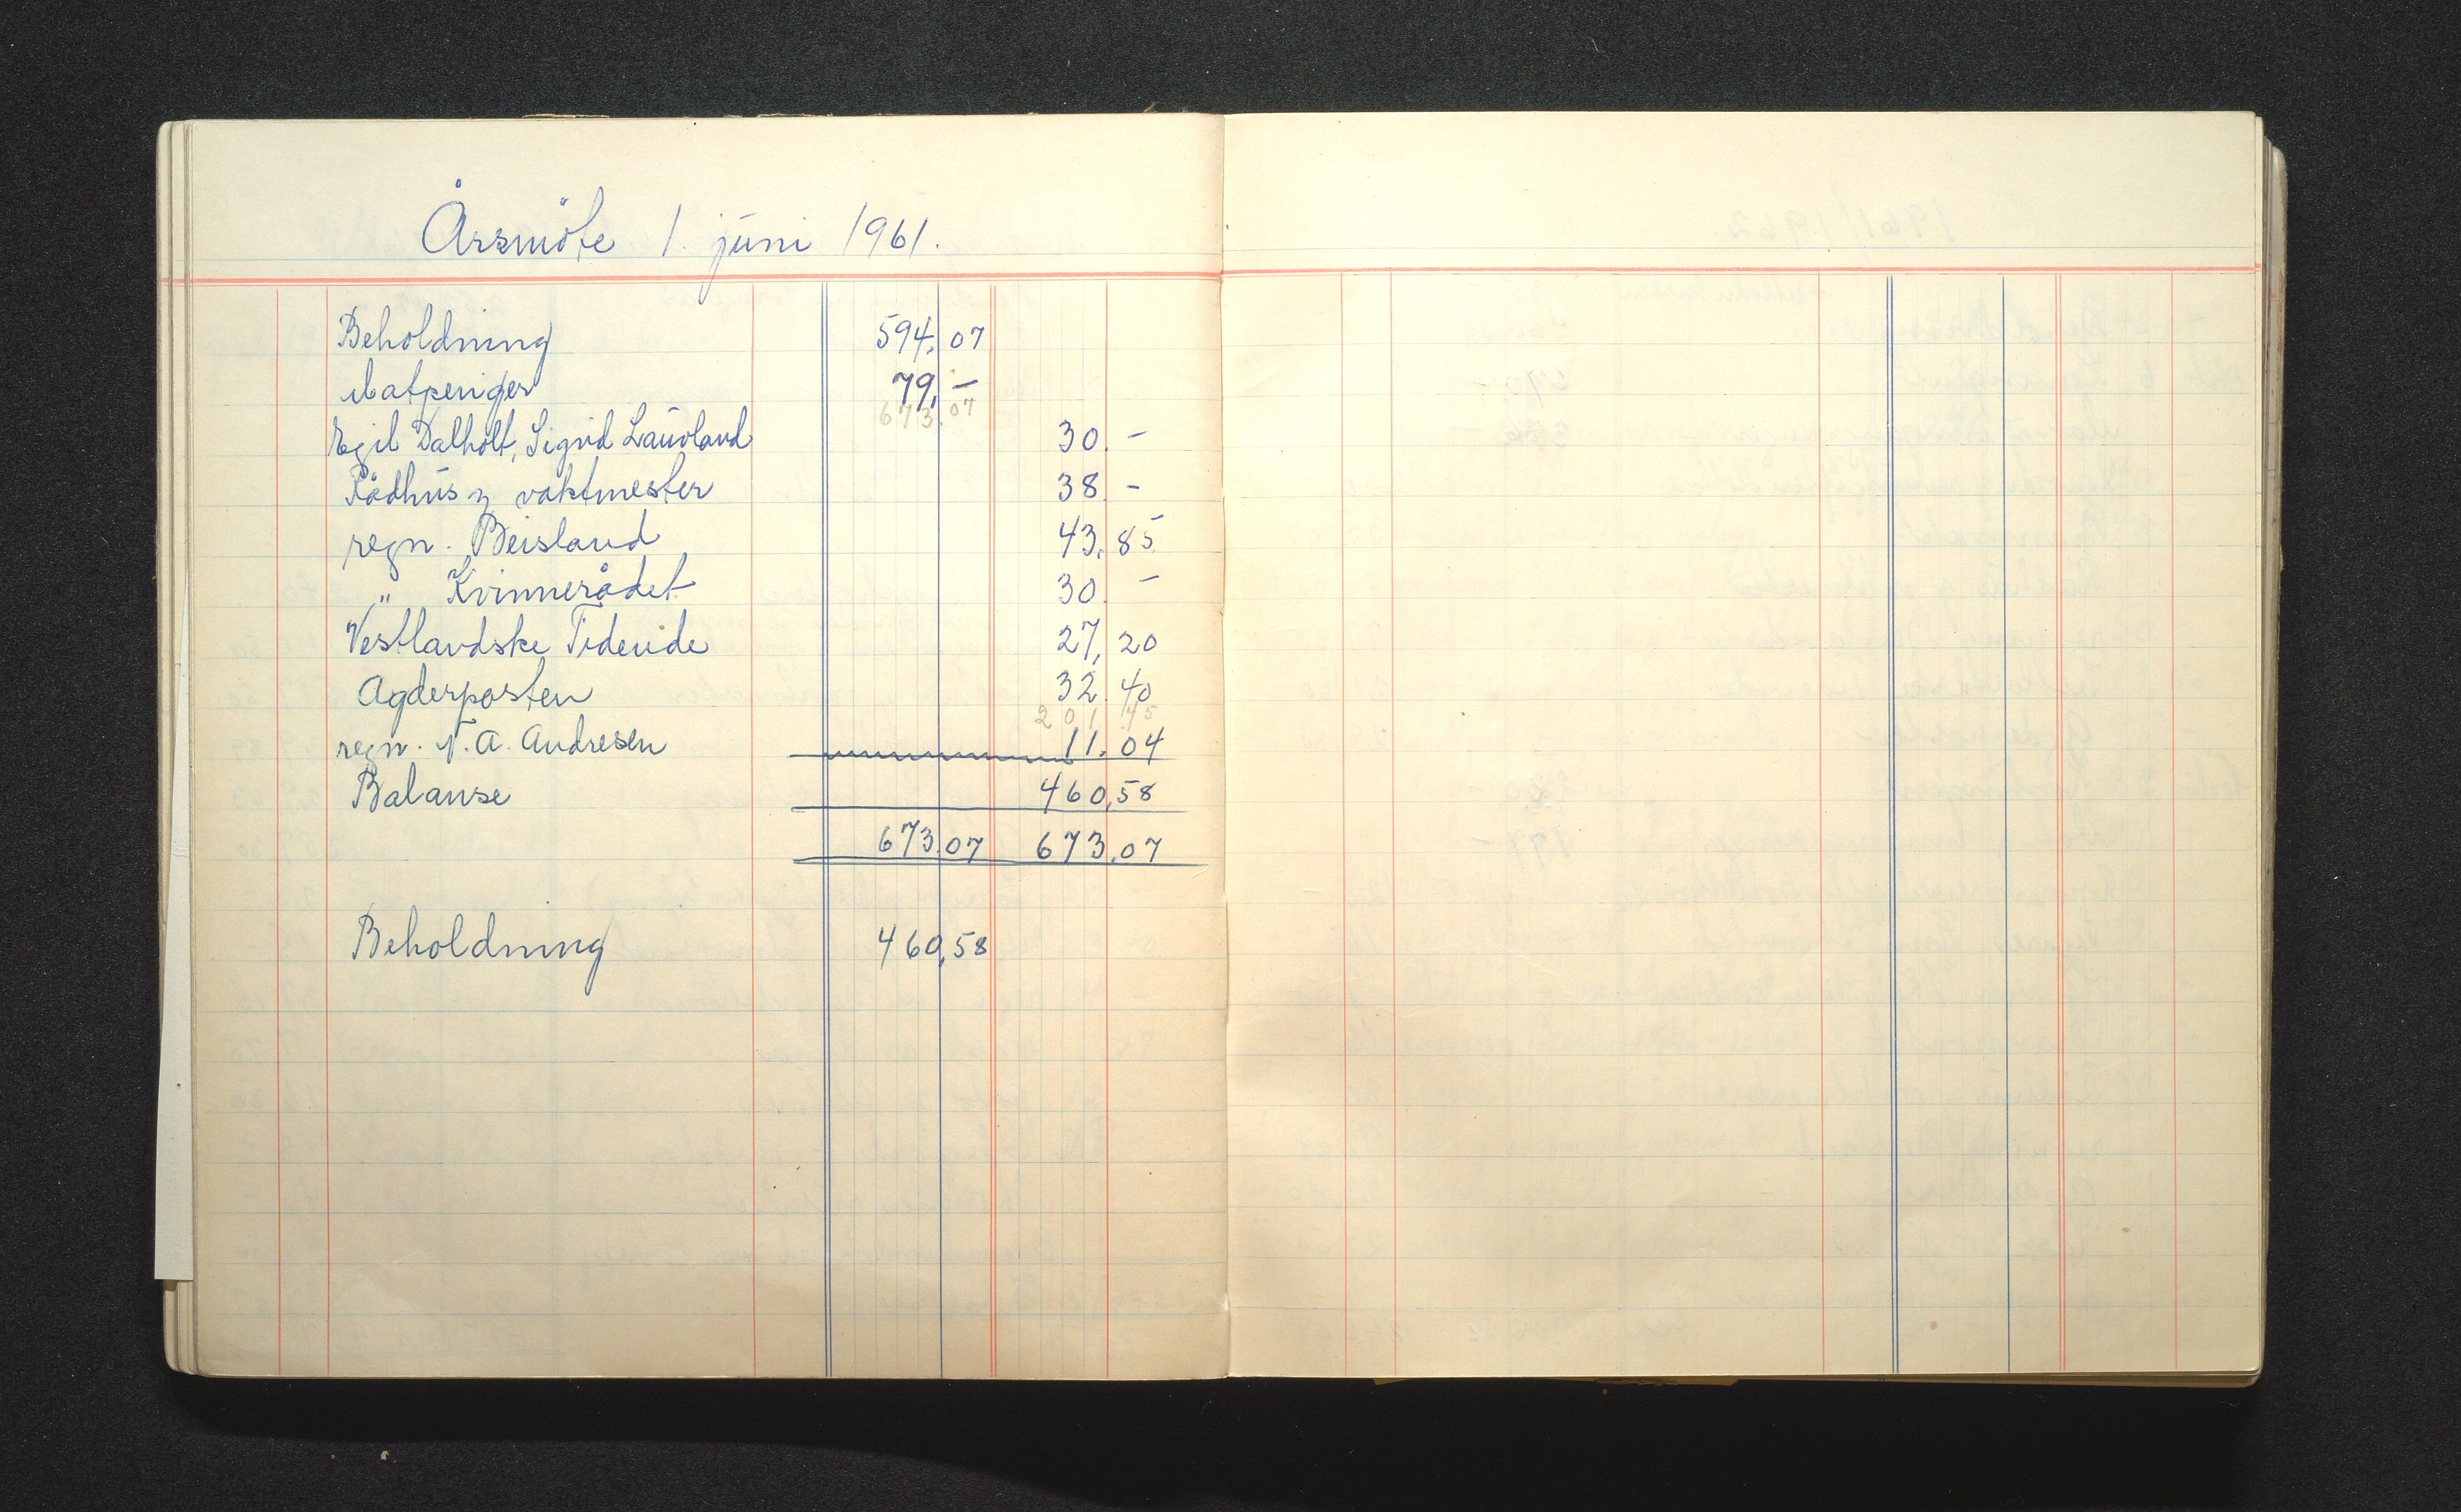 Årsmöte 1. juni 1961.
Beholdning 594,07
Matpenger 79,-
673.07
Egil Dalholt, Sigrid Lauvland 30.-
Rådhus og vaktmester 38 -
regn. Beisland 43,85
" Kvinnerådet 30.-
Vestlandske Tidende 27,20
Agderposten 32.40
201 45
regn. N. A. Andresen 11.04
Balanse 460,58
673,07 673,07
Beholdning 460,58